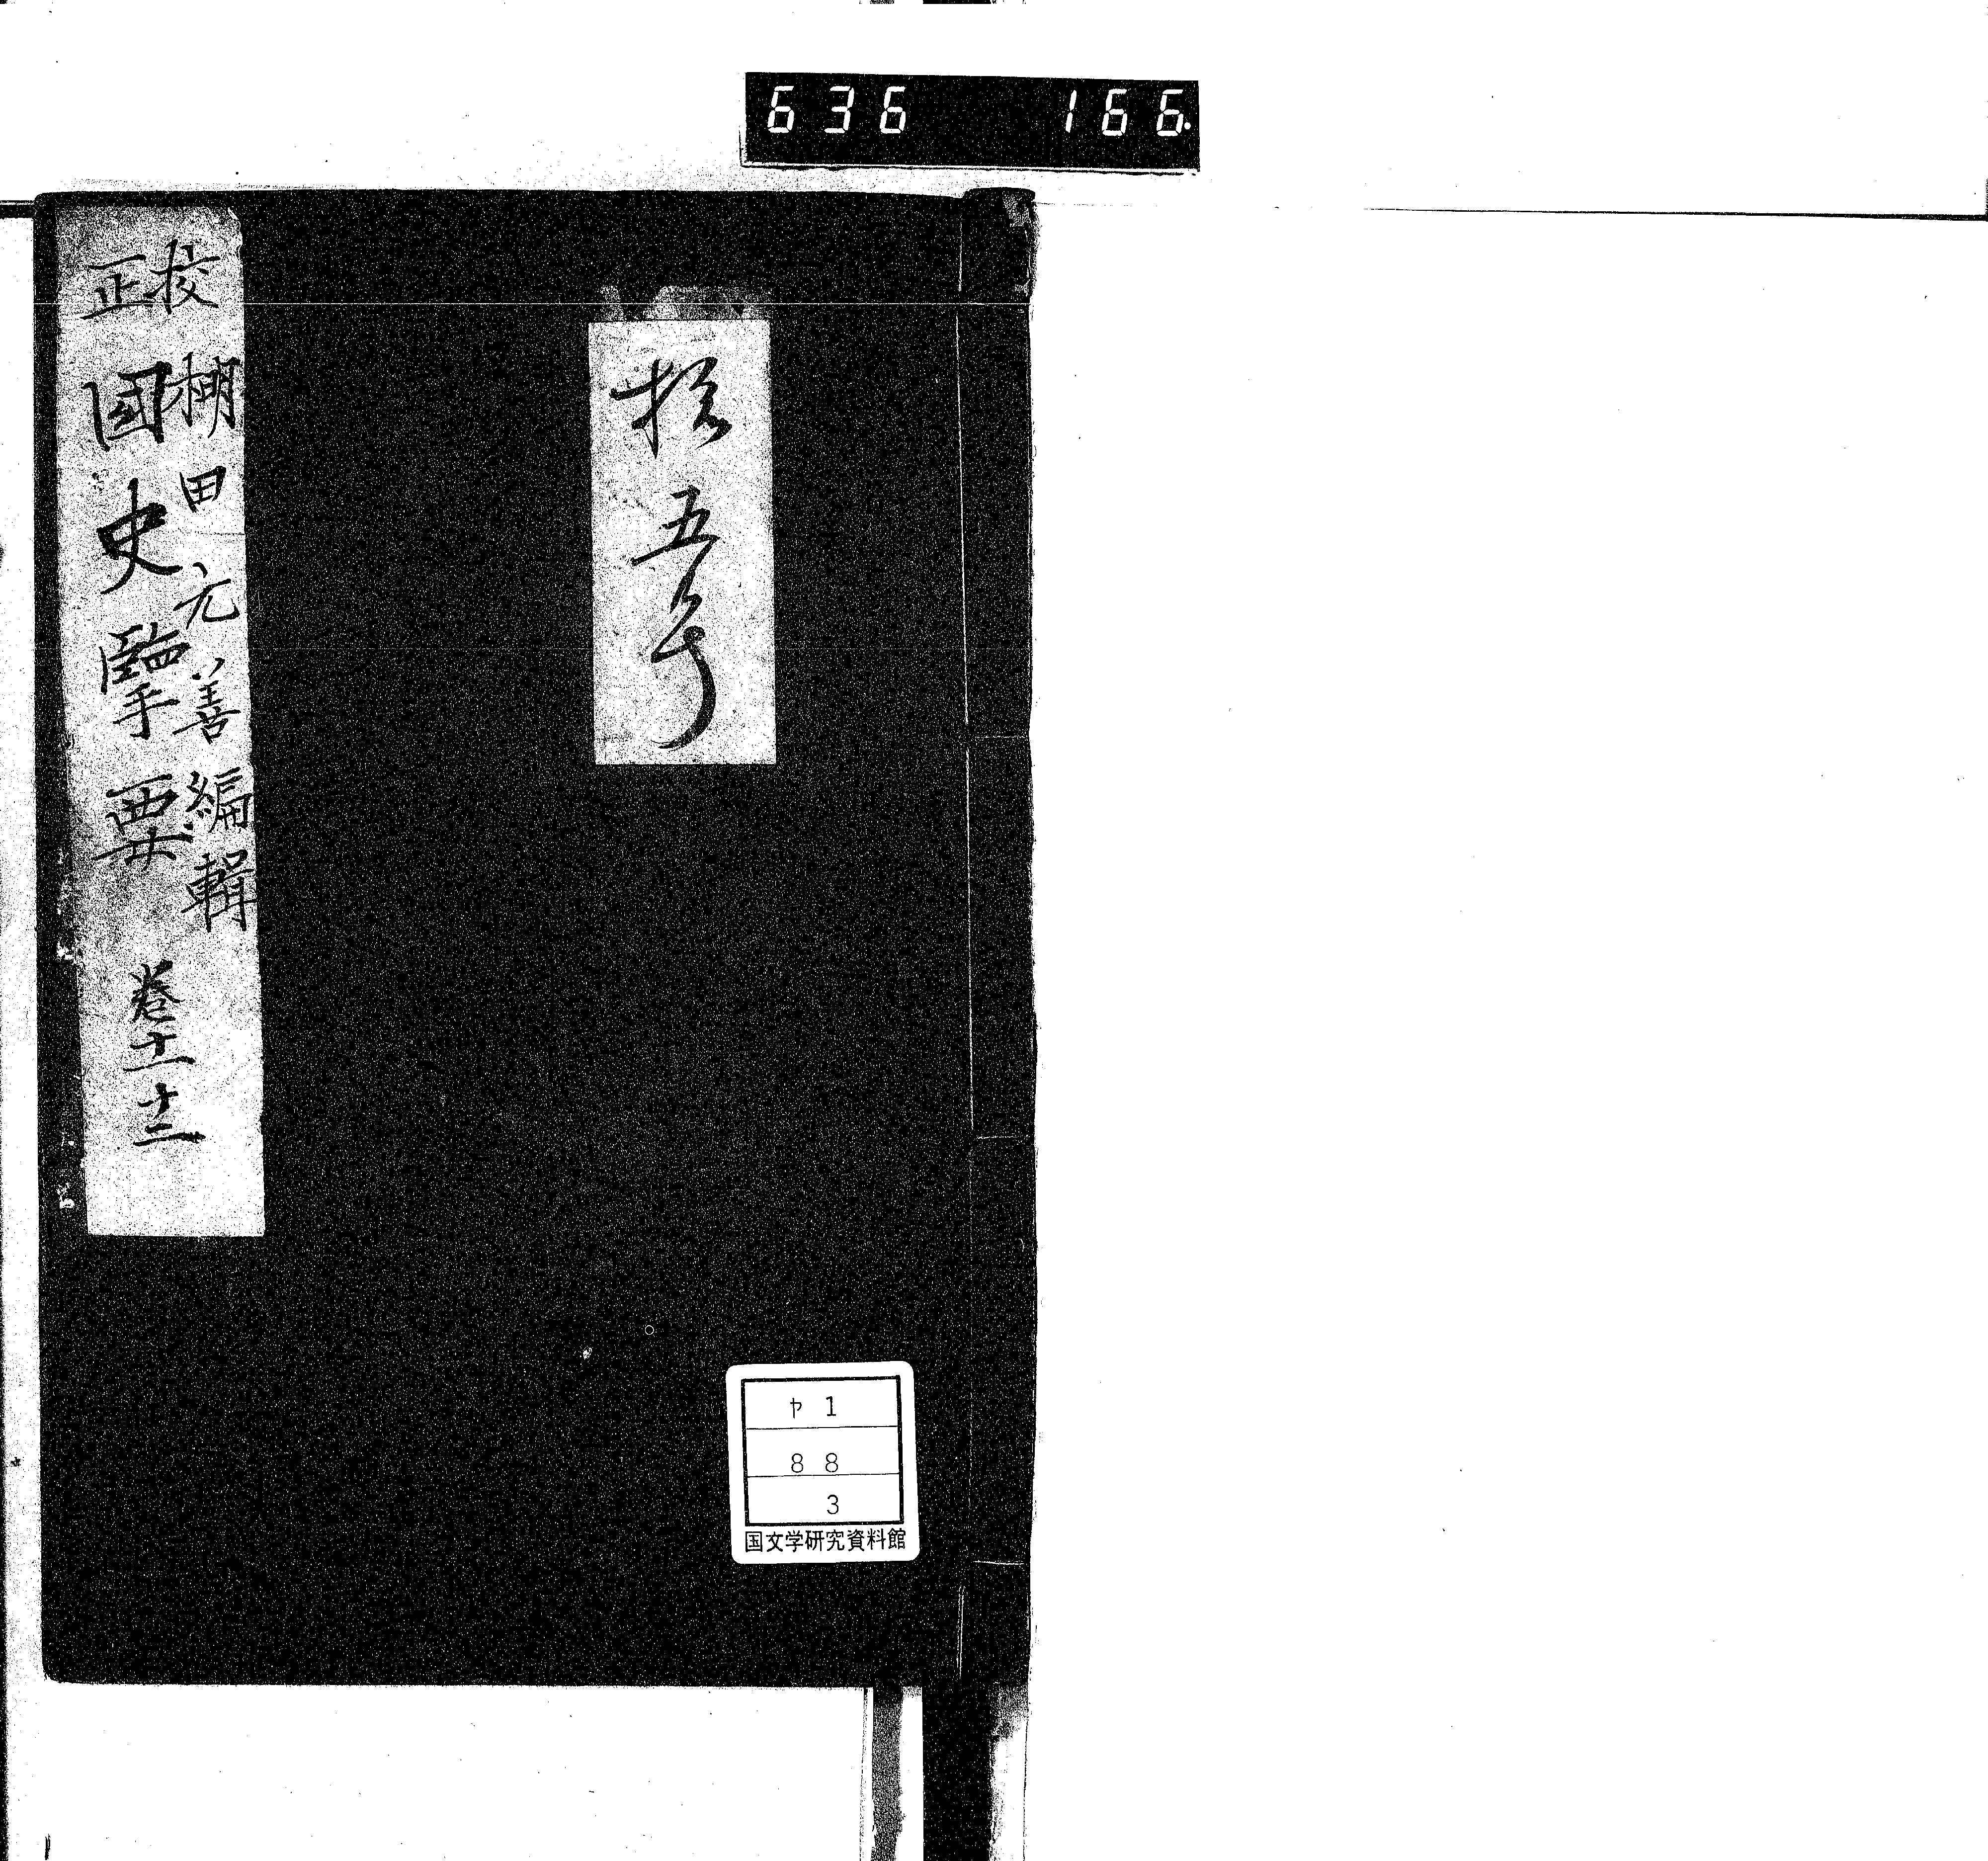 636 166.
拾五号
校正
棚田元善編輯
國史擥要 卷十一 十二
ヤ1
88
3
国文学研究資料館